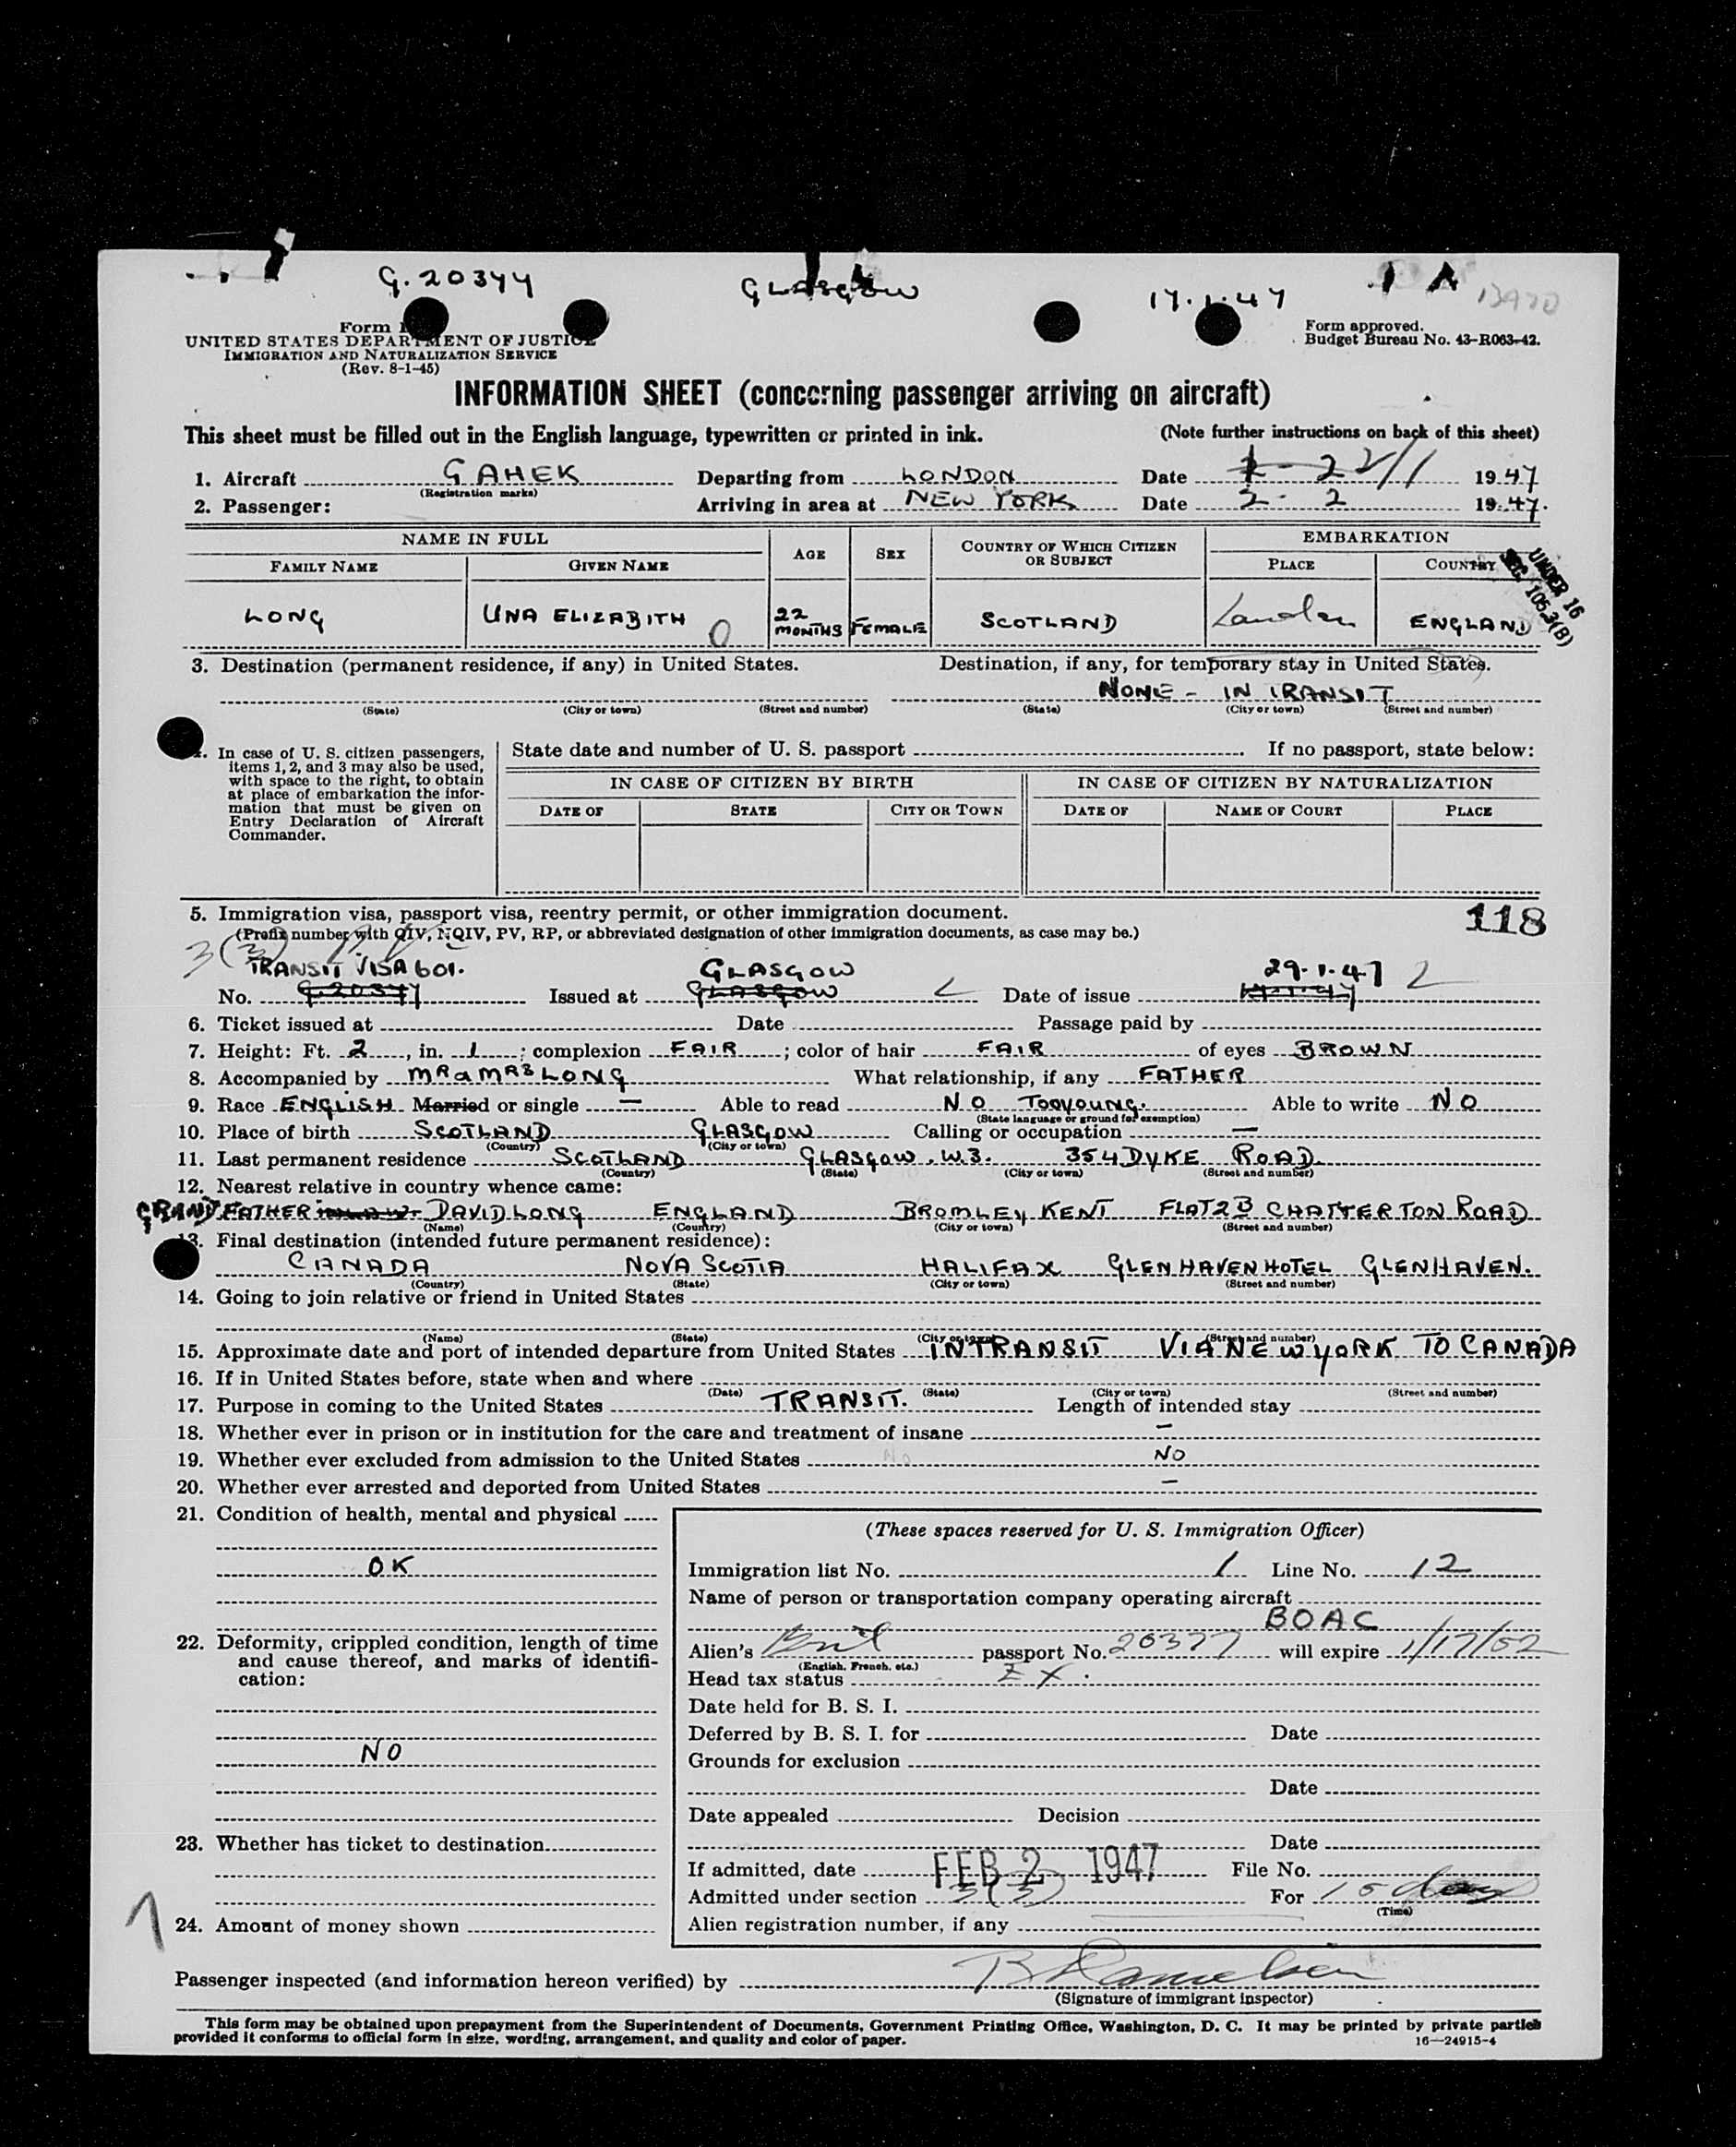 G. 20344 GLASGOW 17.1.47 13970
Form
UNITED STATES DEPARTMENT OF JUSTICE
IMMIGRATION AND NATURALIZATION SERVICE
(Rev. 8-1-45)
Form approved.
Budget Bureau No. 43-R063-42.
INFORMATION SHEET (concerning passenger arriving on aircraft)
This sheet must be filled out in the English language, typewritten or printed in ink. (Note further instructions on back of this sheet)
1. Aircraft G AHEK Departing from LONDON Date 22/1 1947
(Registration marks)
2. Passenger: Arriving in area at NEW YORK Date 2-2 1947.
NAME IN FULL AGE SEX COUNTRY OF WHICH CITIZEN OR SUBJECT EMBARKATION
FAMILY NAME GIVEN NAME PLACE COUNTRY
UNDER 16
SEC. 105.3(B)
LONG UNA ELIZABITH 0 22 MONTHS FEMALE SCOTLAND London ENGLAND
3. Destination (permanent residence, if any) in United States. Destination, if any, for temporary stay in United States.
NONE - IN TRANSIT
(State) (City or town) (Street and number) (State) (City or town) (Street and number)
4. In case of U. S. citizen passengers,
items 1, 2, and 3 may also be used,
with space to the right, to obtain
at place of embarkation the infor-
mation that must be given on
Entry Declaration of Aircraft
Commander.
State date and number of U. S. passport If no passport, state below:
IN CASE OF CITIZEN BY BIRTH IN CASE OF CITIZEN BY NATURALIZATION
DATE OF STATE CITY OR TOWN DATE OF NAME OF COURT PLACE
5. Immigration visa, passport visa, reentry permit, or other immigration document. 118
(Prefix number with QIV, NQIV, PV, RP, or abbreviated designation of other immigration documents, as case may be.)
3(3)
TRANSIT VISA 601. GLASGOW 29.1.47
No. G.20377 Issued at GLASGOW Date of issue 17.1.47
6. Ticket issued at Date Passage paid by
7. Height: Ft. 2, in. 1; complexion FAIR; color of hair FAIR of eyes BROWN
8. Accompanied by MR a MRS LONG What relationship, if any FATHER
9. Race ENGLISH Married or single — Able to read NO TOO YOUNG. Able to write NO
(State language or ground for exemption)
10. Place of birth SCOTLAND GLASGOW Calling or occupation —
(Country) (City or town)
11. Last permanent residence SCOTLAND GLASGOW. W.3. 354 DYKE ROAD.
(Country) (State) (City or town) (Street and number)
12. Nearest relative in country whence came:
GRANDFATHER IN LAW DAVID LONG ENGLAND BROMLEY KENT FLAT 2B CHATTERTON ROAD
(Name) (Country) (City or town) (Street and number)
13. Final destination (intended future permanent residence):
CANADA NOVA SCOTIA HALIFAX GLENHAVEN HOTEL GLENHAVEN.
(Country) (State) (City or town) (Street and number)
14. Going to join relative or friend in United States
(Name) (State) (City or town) (Street and number)
15. Approximate date and port of intended departure from United States IN TRANSIT VIA NEW YORK TO CANADA
16. If in United States before, state when and where
(Date) (State) (City or town) (Street and number)
17. Purpose in coming to the United States TRANSIT. Length of intended stay
18. Whether ever in prison or in institution for the care and treatment of insane —
19. Whether ever excluded from admission to the United States NO
20. Whether ever arrested and deported from United States —
21. Condition of health, mental and physical
OK
22. Deformity, crippled condition, length of time
and cause thereof, and marks of identifi-
cation:
NO
23. Whether has ticket to destination
24. Amount of money shown
(These spaces reserved for U. S. Immigration Officer)
Immigration list No. 1 Line No. 12
Name of person or transportation company operating aircraft
BOAC
Alien's Brit passport No. 20377 will expire 1/17/52
(English, French, etc.)
Head tax status EX.
Date held for B. S. I.
Deferred by B. S. I. for Date
Grounds for exclusion
Date
Date appealed Decision
Date
If admitted, date FEB 2 1947 File No.
Admitted under section 3(3) For 15 days
(Time)
Alien registration number, if any
Passenger inspected (and information hereon verified) by
(Signature of immigrant inspector)
This form may be obtained upon prepayment from the Superintendent of Documents, Government Printing Office, Washington, D. C. It may be printed by private parties
provided it conforms to official form in size, wording, arrangement, and quality and color of paper. 16—24915-4